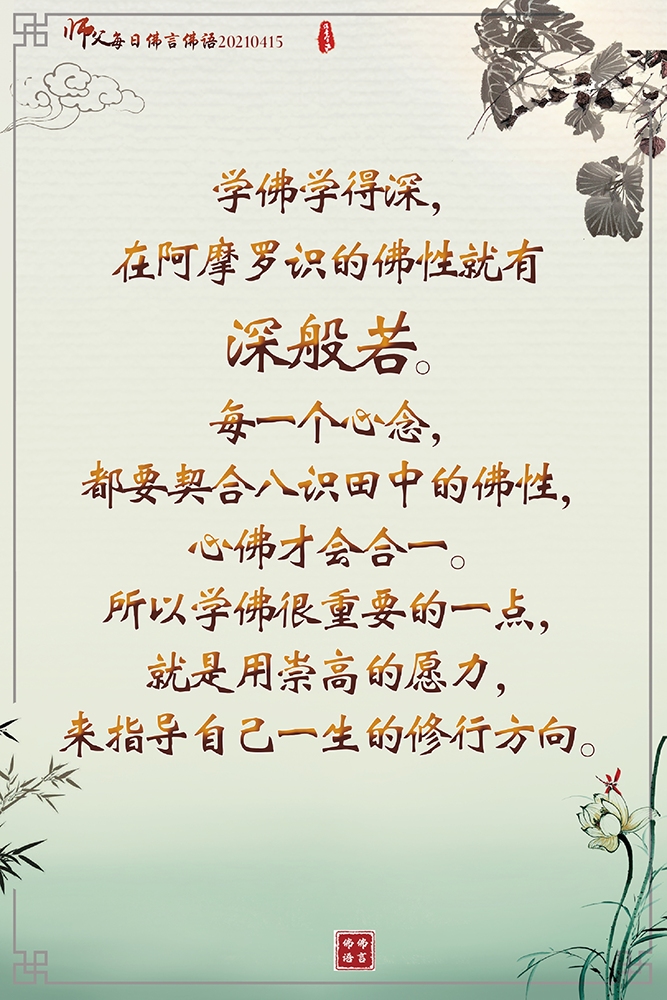 师父每日佛言佛语20210415
学佛学得深，
在阿摩罗识的佛性就有
深般若。
每一个心念，
都要契合八识田中的佛性，
心佛才会合一。
所以学佛很重要的一点，
就是用崇高的愿力，
来指导自己一生的修行方向。
佛言佛语